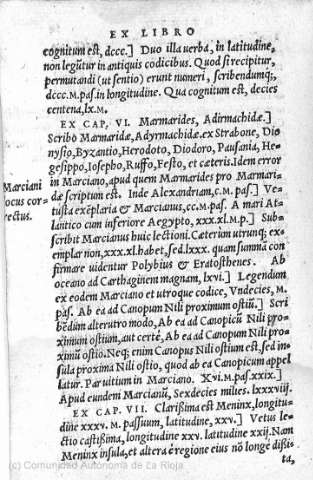 EX LIBRO
cognitum est, dccc.] Duo illa uerba, in latitudine,
non legūtur in antiquis codicibus. Quod si recipitur,
permutandi (ut sentio) erunt numeri, scribendumq;,
dccc.M.pas. in longitudine. Qua cognitum est, decies
centena, lx.M.
EX CAP. VI. Marmarides, Adirmachidæ.]
Scribo Marmaridæ, Adyrmachidæ ex Strabone, Dio
nysio, Byzantio, Herodoto, Diodoro, Pausania, He-
gesippo, Iosepho, Ruffo, Festo, et cæteris. Idem error
in Marciano, apud quem Marmarides pro Marmari-
Marciani
locus cor-
rectus.
dæ scriptum est. Inde Alexandriam, c.M.pas.] Ve-
tusta exēplaria & Marcianus, cc.M.pas. A mari At-
lantico cum inferiore Aegypto, xxx.xl.M.p.] Sub-
scribit Marcianus huic lectioni. Cæterùm utrunq; ex-
emplar non, xxx.xl. habet, sed lxxx. quam summā con
firmare uidentur Polybius & Eratosthenes. Ab
oceano ad Carthaginem magnam, lxvi.] Legendum
ex eodem Marciano et utroque codice, Vndecies, M.
pas. Ab ea ad Canopum Nili proximum ostiū.] Scri
bēdum alterutro modo, Ab ea ad Canopicū Nili pro-
ximum ostium, aut certè, Ab ea ad Canopum Nili pro-
ximū ostio. Neq; enim Canopus Nili ostium est, sed in-
sula proxima Nili ostio, quod ab ea Canopicum appel
latur. Par uitium in Marciano. Xvi.M.pas.xxix.]
Apud eundem Marcianū, Sexdecies milies. lxxxviij.
EX CAP. VII. Clarissima est Meninx, longitu-
dine xxxv. M. passuum, latitudine, xxv.] Vetus le-
ctio castissima, longitudine xxv. latitudine xxij. Nam
Meninx insula, et altera è regione eius nō longè dissi-
ta,
(c) Comunidad Autónoma de La Rioja